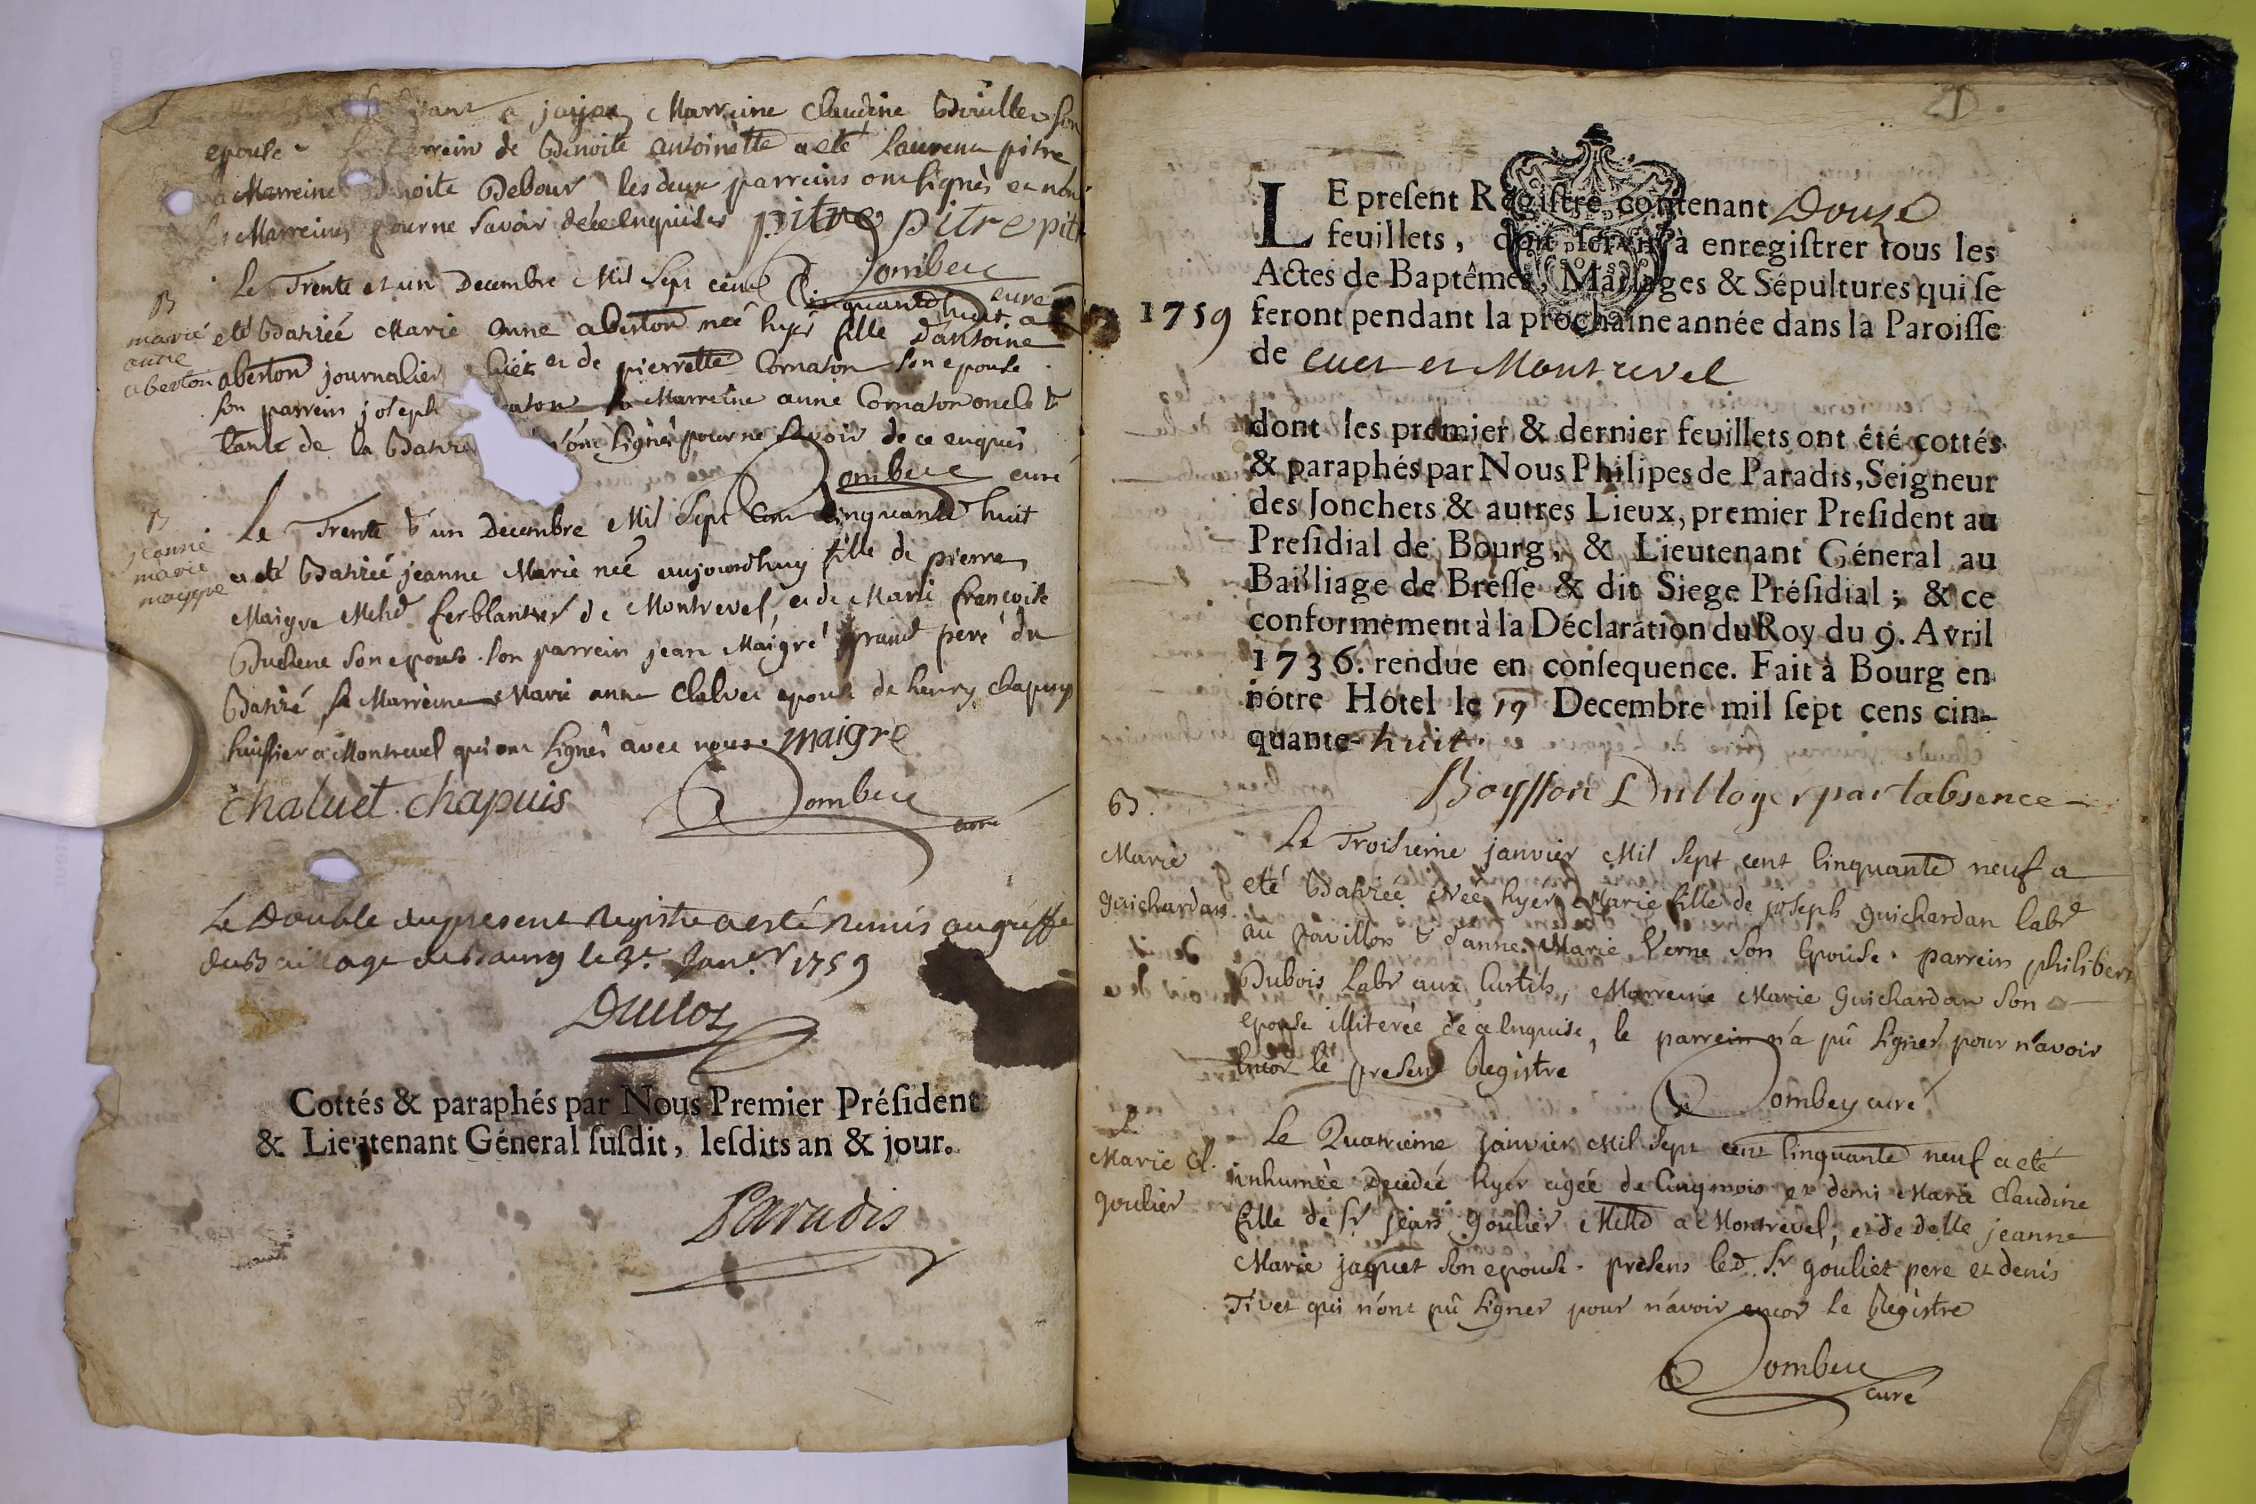 a jayat Marreine Claudine
epouse de Benoite antoinette a eté Laurent pitre
Marreine Benoite Debour les deux parreins ont signés et non
Les Marreines pour ne savoir de ce enquises pitre pitre pit
Dombeÿ curé
B
marie
anne
aberton
Le Trente et un Decembre Mil Sept cent Cinquante huit a
eté Batizée Marie Anne aberton née hyer fille d'antoine
aberton journalier et de pierrette Cornaton son epouse
son parrein joseph sa Marreine anne Cornaton oncle &
tante de la Batizée n'ont signés pour ne savoir de ce enquis
Dombeÿ curé
B
jeanne
marie
maigre
Le Trente & un Decembre Mil Sept Cent Cinquante huit
a eté Batizée jeanne Marie née aujourdhuy fille de pierre
Maigre Mchd ferblantier de Montrevel, et de Marie francoise
Buchene son epouse. son parrein jean Maigre grand pere du
Batizé sa Marreine Marie anne Chaluet epouse de henry chapuy
huissier a Montrevel qui ont signés avec nous. maigre
chaluet chapuis Dombeÿ
curé
Le Double du present Registre a esté remis au greffe
du Bailliage de Bourg le 3e. Janer 1759
Duclos
Cottés & paraphés par Nous Premier Président
& Lieutenant Géneral ſuſdit, leſdits an & jour.
Paradis
1
LE preſent Regiſtre, contenant Douze
feuillets, doit ſervir à enregiſtrer tous les
Actes de Baptêmes, Mariages & Sépultures qui ſe
1759 feront pendant la prochaine année dans la Paroiſſe
de Cuet et Montrevel
dont les premier & dernier feuillets ont été cottés
& paraphés par Nous Philipes de Paradis, Seigneur
des Jonchets & autres Lieux, premier Preſident au
Preſidial de Bourg, & Lieutenant Géneral au
Bailliage de Breſſe & dit Siege Préſidial; & ce
conformément à la Déclaration du Roy du 9. Avril
1736. rendue en conſequence. Fait à Bourg en
nôtre Hôtel le 19 Decembre mil ſept cens cin-
quante-huit.
par l'absence
B.
Marie
guichardan
Le Troisieme janvier Mil Sept cent Cinquante neuf a
eté Batizée née hyer Marie fille de joseph guichardan labr
au pavillon & d'anne Marie Verne son Epouse. parrein philibert
Dubois Labr aux Curtils, Marreine Marie guichardan son
epouse illiterée de ce Enquise, le parrein n'a pû signer pour n'avoir
Encor le present Registre
Dombey curé
Marie Cl.
goulier
Le Quatrieme janvier Mil Sept cent Cinquante neuf a eté
inhumée Decedée hyer agée de Cinq mois et demi Marie Claudine
fille de Sr jean goulier Mchd a Montrevel, et de delle jeanne
Marie jaquet son epouse. presens led. Sr goulier pere et denis
Tivet qui n'ont pû signer pour n'avoir encor le Registre
Dombeÿ
curé